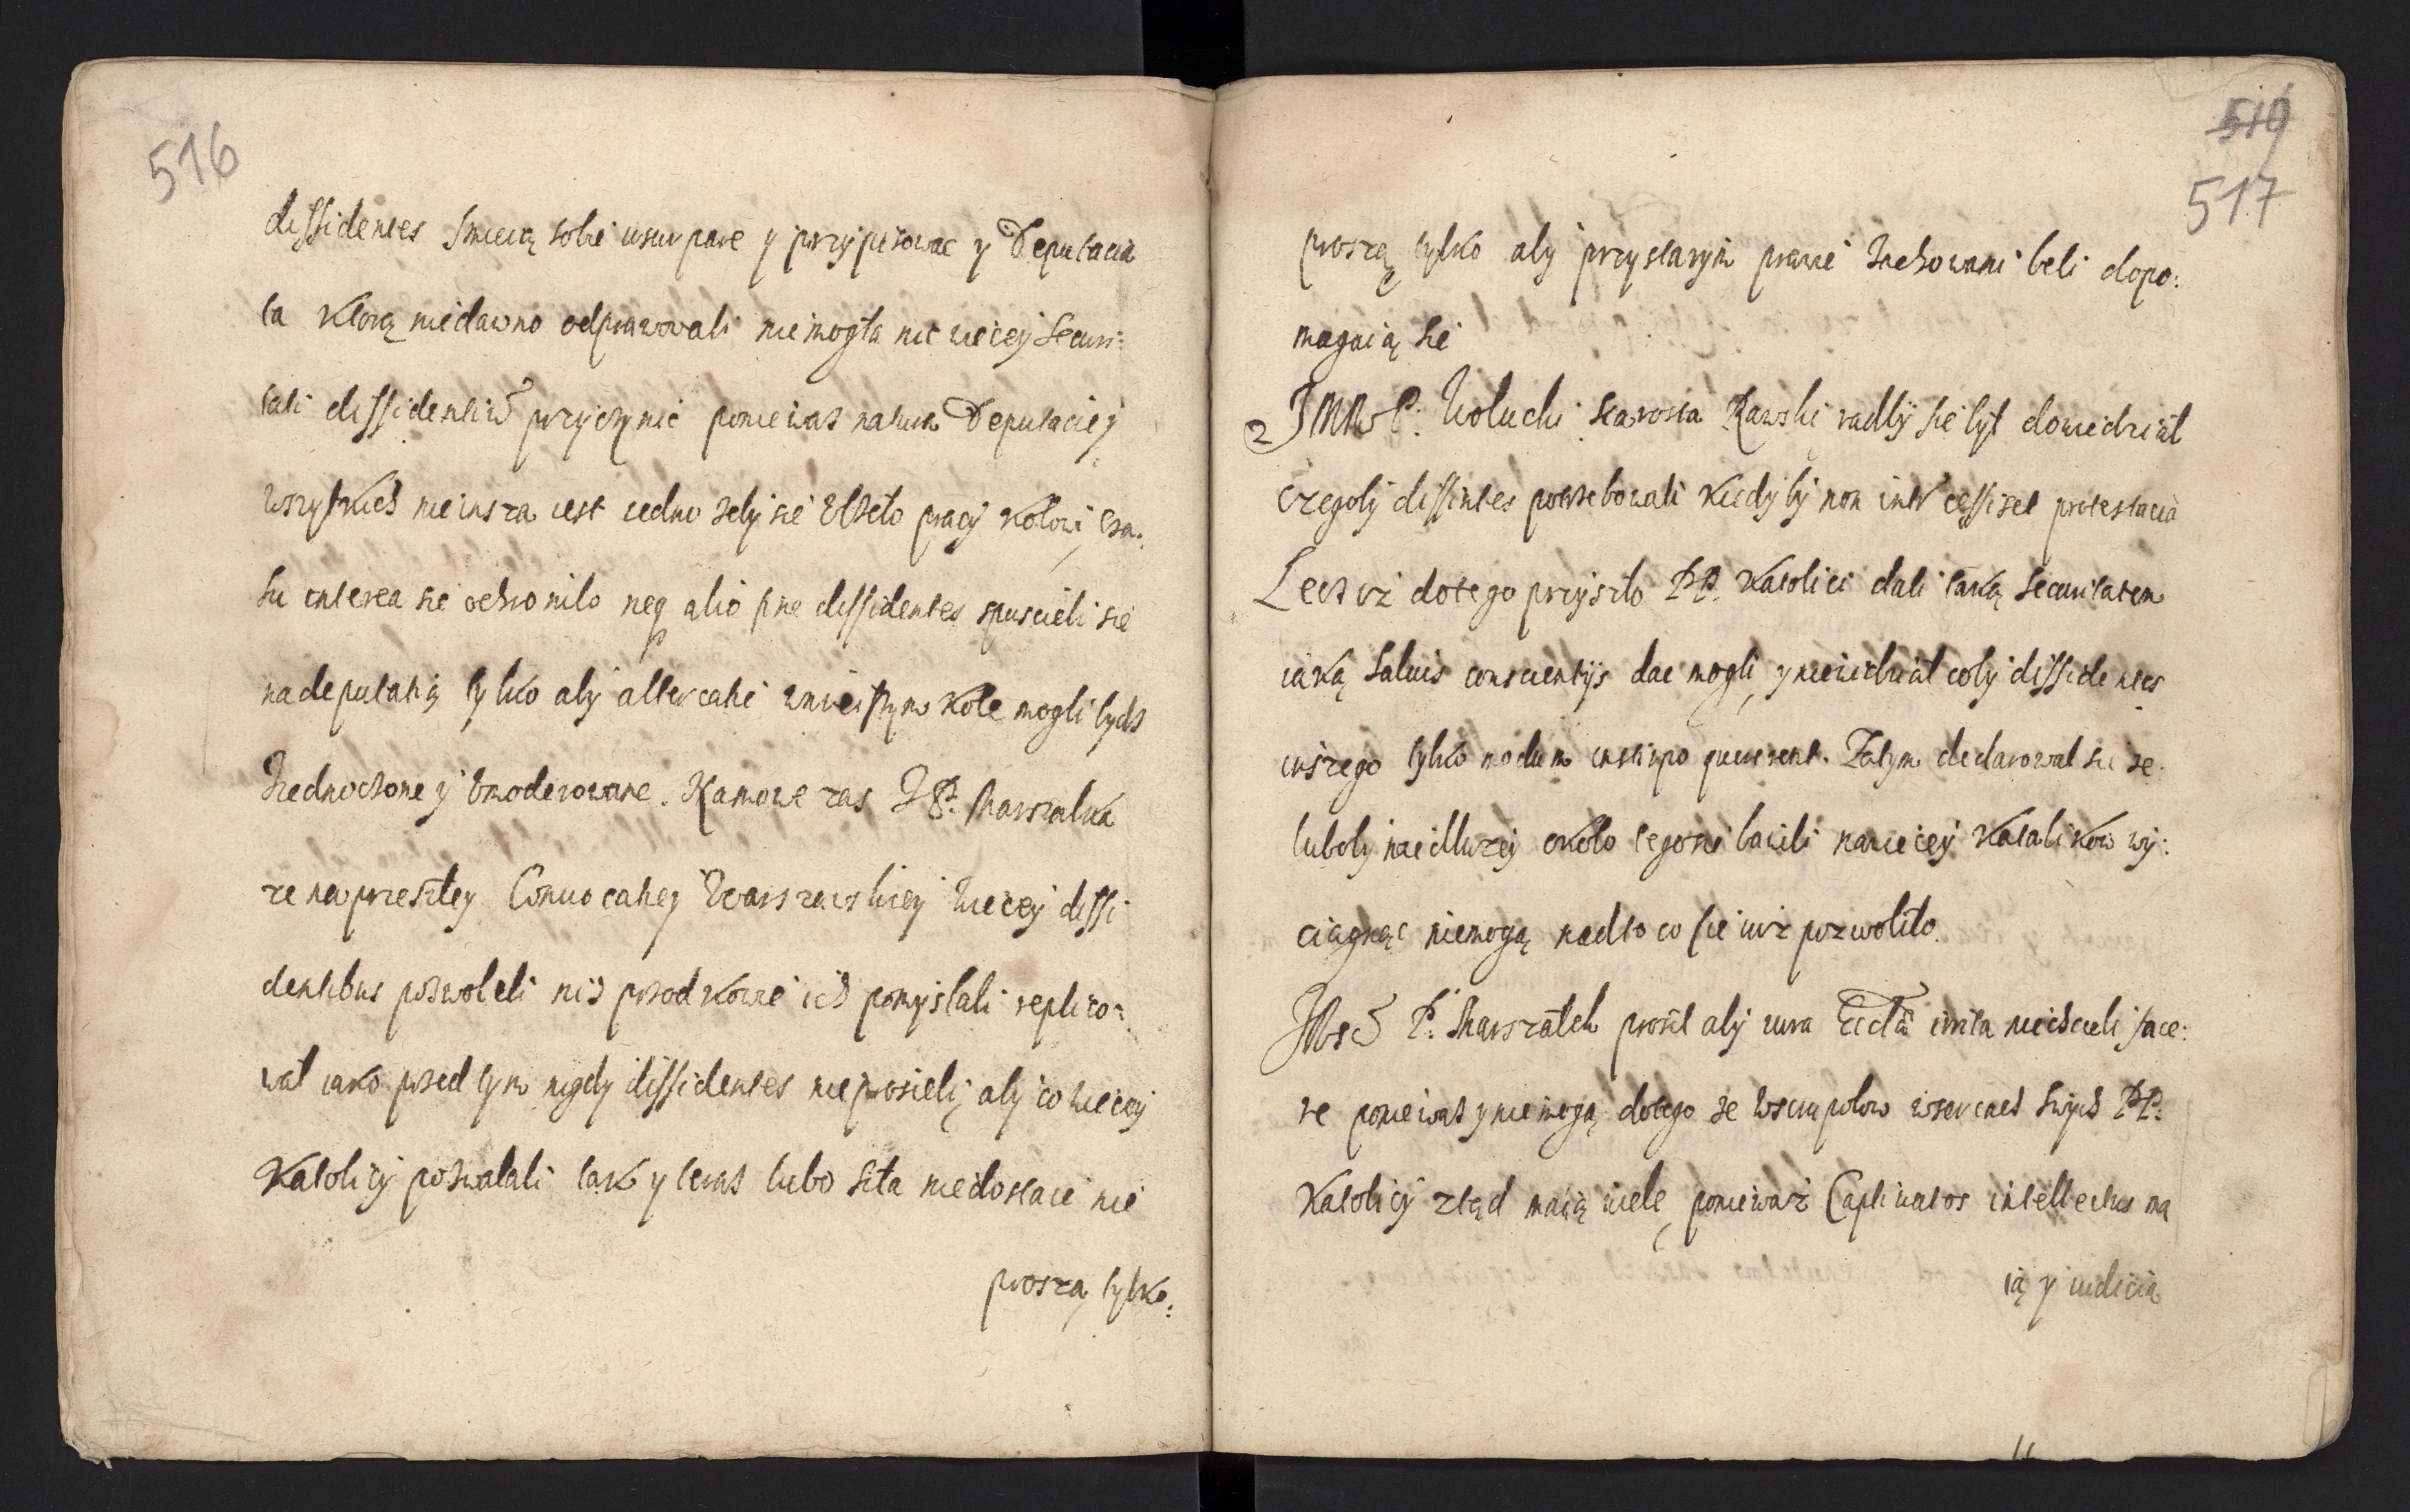 516
dissidentes smieią sobie usurpare y przypisowac y Deputacia
ta ktorą niedawno odprawowali nie mogła nic wiecey securi:
tati dissidentiũ przyczynić poniewasz natura Deputaciey
wszytkich nie insza iest iedno zeby sie Elżeło pracy kołowi, cza:
su interea sie ochroniło neq alio fine dissidentes spuscieli sie
na deputatią tylko aby altercatie w mnieiszym kole mogli bydz
Ziednoczone y Vmoderowane. Na mowe zas J P. Marszałka
ze na przeszłey Convocatiey Warszawskiey wiecey dissi
dentibus pozwoleli niż przodkowie ich pomyslali repliko:
wał iako przed tym nigdy dissidentes nie prosieli, aby co wiecey
Katolicy pozwalali tak y teraz lubo siła niedostaie nie
proszą tylko:
519
517
proszą tylko aby przy starym prawie zachowani beli dopo:
magaią sie
2 JMP. Woluchi starosta Rawski radby sie był dowiedział
czegoby dissintes potrzebowali kiedyby non intercessisset protestacia
Lecz iż do tego przyszło PP. Katolici dali taką securitatem
iaką salvis conscientijs dac mogli, y nie widział coby dissidentes
inszego tylko nodum in scirpo quererent. Zatym declarował sie ze
luboby naidłuzey około tego sie bawili na wiecey Katalikow wy:
ciągnąc niemogą nad to co sie iuż pozwoliło.
JMsć P. Marszałek prosił aby iura Ectã irrita niechcieli face:
re poniewasz y nie mogą do tego ze skrupułow w sercach swych PP.
Katolicy ztąd maią wiele, ponieważ Captivatos intellectus ma
ią y iudicia